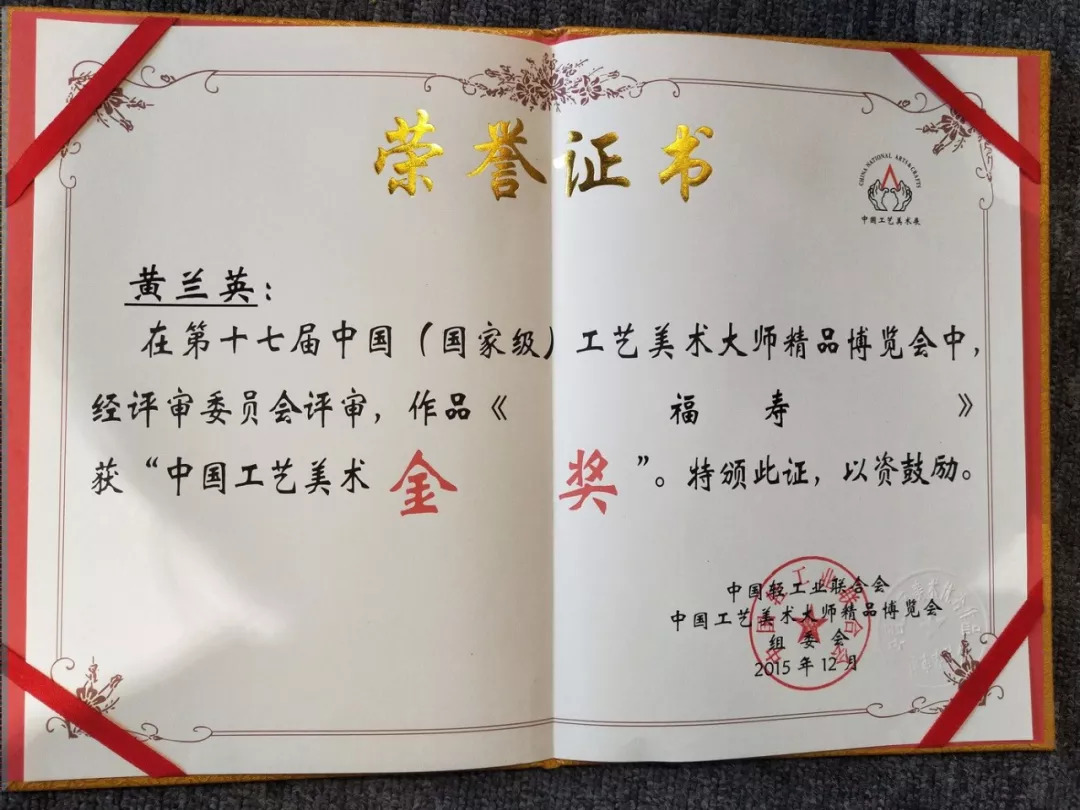 荣誉证书
CHINA NATIONAL ARTS&CRAFTS
中国工艺美术展
黄兰英：
在第十七届中国（国家级）工艺美术大师精品博览会中，
经评审委员会评审，作品《 福寿 》
获“中国工艺美术 金奖 ”。特颁此证，以资鼓励。
中国轻工业联合会
中国工艺美术大师精品博览会
组委会
2015年12月
中国轻工业联合会